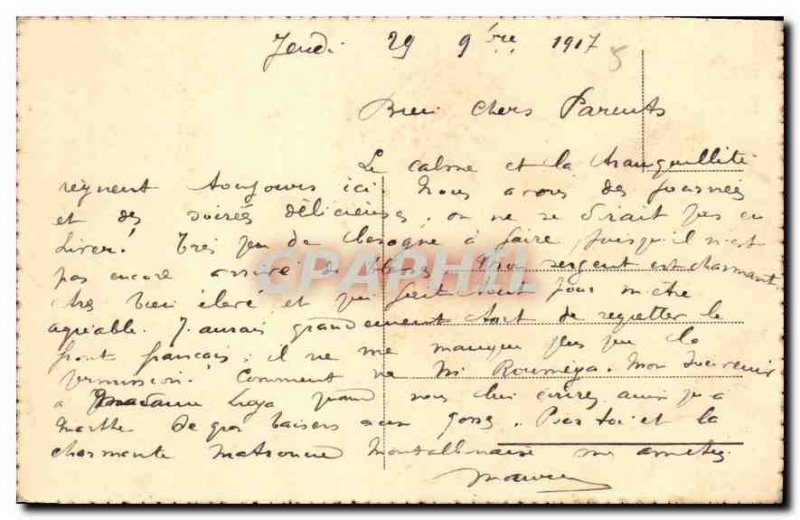 Jeudi 29 9bre 1917
5
Bien chers Parents
Le calme et la tranquillité
règnent toujours ici. Nous avons des journées
et des soirées délicieuses, on ne se dirait pas en
hiver! Très peu de besogne à faire puisqu'il n'est
pas encore arrivé de blessés. Mon sergent est charmant,
très bien élevé et qui fait tout pour m'être
agréable. J'aurais grandement tort de regretter le
front français; il ne me manque plus que la
permission! Comment va Mr Rouméga. Mon souvenir
à Madame quand vous lui écrirez, ainsi qu'à
Marthe. De gros baisers aux gosses. Pour toi et la
charmante matrone Montalbanaise mes amitiés.
Maurice
CPAPHIL